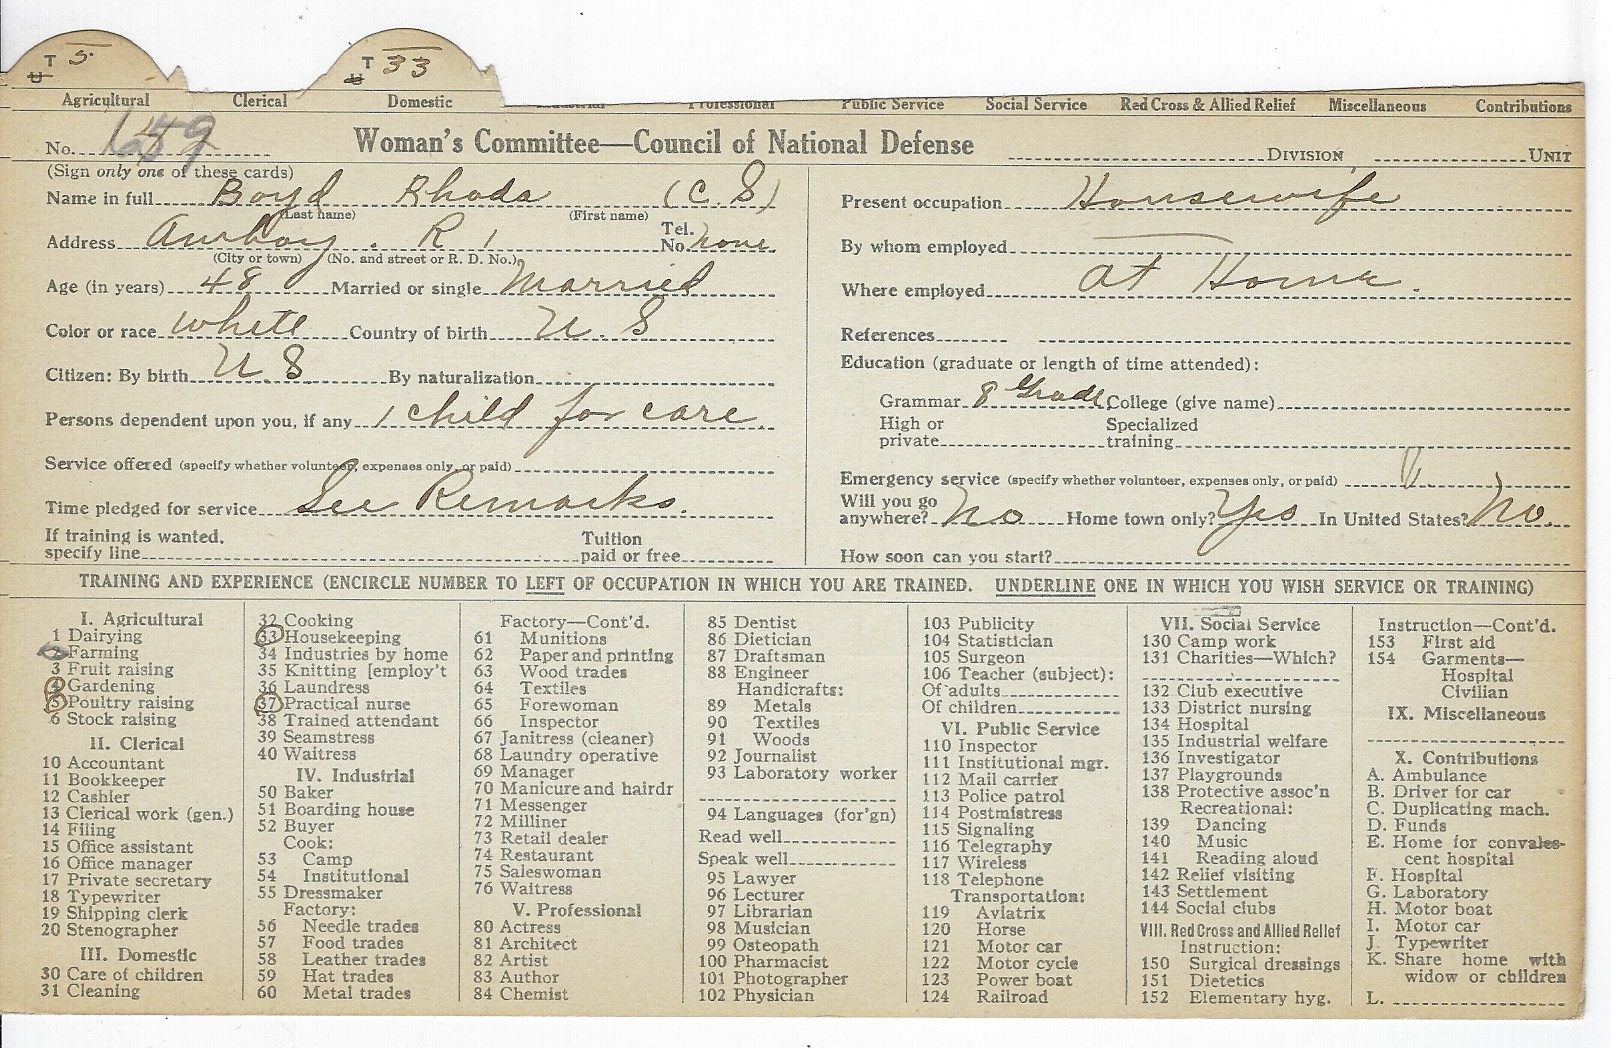 T 5
U
T 33
U
Agricultural Clerical Domestic Industrial Professional Public Service Social Service Red Cross & Allied Relief Miscellaneous Contributions
No. Woman's Committee—Council of National Defense DIVISION UNIT
(Sign only one of these cards)
Name in full Boyd Rhoda (C. S)
(Last name) (First name)
Address Amboy. R 1 Tel. No. none
(City or town) (No. and street or R. D. No.)
Age (in years) 48 Married or single Married
Color or race White Country of birth U. S
Citizen: By birth U S By naturalization
Persons dependent upon you, if any 1 child for care
Service offered (specify whether volunteer, expenses only, or paid)
Time pledged for service See Remarks.
If training is wanted, specify line Tuition paid or free
Present occupation Housewife
By whom employed —
Where employed at Home.
References
Education (graduate or length of time attended):
Grammar 8 Grade College (give name)
High or private Specialized training
Emergency service (specify whether volunteer, expenses only, or paid)
Will you go anywhere? No Home town only? Yes In United States? No.
How soon can you start?
TRAINING AND EXPERIENCE (ENCIRCLE NUMBER TO LEFT OF OCCUPATION IN WHICH YOU ARE TRAINED. UNDERLINE ONE IN WHICH YOU WISH SERVICE OR TRAINING)
I. Agricultural
1 Dairying
2 Farming
3 Fruit raising
4 Gardening
5 Poultry raising
6 Stock raising
II. Clerical
10 Accountant
11 Bookkeeper
12 Cashier
13 Clerical work (gen.)
14 Filing
15 Office assistant
16 Office manager
17 Private secretary
18 Typewriter
19 Shipping clerk
20 Stenographer
III. Domestic
30 Care of children
31 Cleaning
32 Cooking
33 Housekeeping
34 Industries by home
35 Knitting [employ't
36 Laundress
37 Practical nurse
38 Trained attendant
39 Seamstress
40 Waitress
IV. Industrial
50 Baker
51 Boarding house
52 Buyer
Cook:
53 Camp
54 Institutional
55 Dressmaker
Factory:
56 Needle trades
57 Food trades
58 Leather trades
59 Hat trades
60 Metal trades
Factory—Cont'd.
61 Munitions
62 Paper and printing
63 Wood trades
64 Textiles
65 Forewoman
66 Inspector
67 Janitress (cleaner)
68 Laundry operative
69 Manager
70 Manicure and hairdr
71 Messenger
72 Milliner
73 Retail dealer
74 Restaurant
75 Saleswoman
76 Waitress
V. Professional
80 Actress
81 Architect
82 Artist
83 Author
84 Chemist
85 Dentist
86 Dietician
87 Draftsman
88 Engineer
Handicrafts:
89 Metals
90 Textiles
91 Woods
92 Journalist
93 Laboratory worker
94 Languages (for'gn)
Read well
Speak well
95 Lawyer
96 Lecturer
97 Librarian
98 Musician
99 Osteopath
100 Pharmacist
101 Photographer
102 Physician
103 Publicity
104 Statistician
105 Surgeon
106 Teacher (subject):
Of adults
Of children
VI. Public Service
110 Inspector
111 Institutional mgr.
112 Mail carrier
113 Police patrol
114 Postmistress
115 Signaling
116 Telegraphy
117 Wireless
118 Telephone
Transportation:
119 Aviatrix
120 Horse
121 Motor car
122 Motor cycle
123 Power boat
124 Railroad
VII. Social Service
130 Camp work
131 Charities—Which?
132 Club executive
133 District nursing
134 Hospital
135 Industrial welfare
136 Investigator
137 Playgrounds
138 Protective assoc'n
Recreational:
139 Dancing
140 Music
141 Reading aloud
142 Relief visiting
143 Settlement
144 Social clubs
VIII. Red Cross and Allied Relief
Instruction:
150 Surgical dressings
151 Dietetics
152 Elementary hyg.
Instruction—Cont'd.
153 First aid
154 Garments—
Hospital
Civilian
IX. Miscellaneous
X. Contributions
A. Ambulance
B. Driver for car
C. Duplicating mach.
D. Funds
E. Home for convales-
cent hospital
F. Hospital
G. Laboratory
H. Motor boat
I. Motor car
J. Typewriter
K. Share home with
widow or children
L.